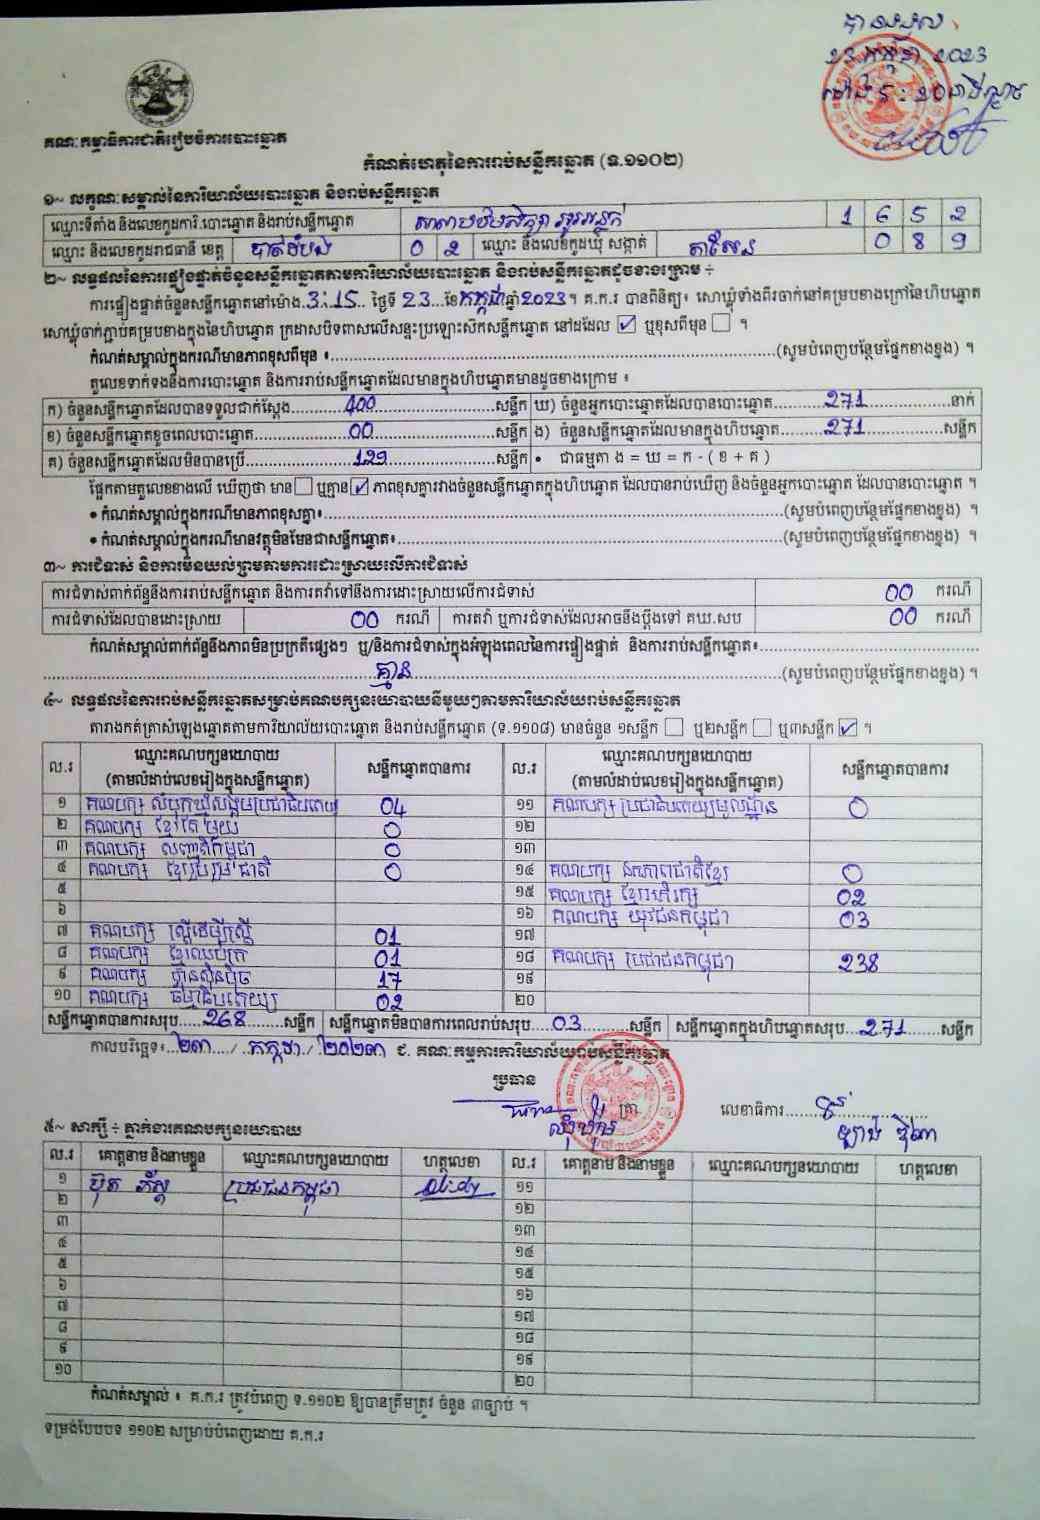 បានទទួល
23 កក្កដា 2023
គណៈកម្មាធិការជាតិរៀបចំការបោះឆ្នោត
កំណត់ហេតុនៃការរាប់សន្លឹកឆ្នោត (ទ.១១០២)
១~ លក្ខណៈសម្គាល់នៃការិយាល័យបោះឆ្នោត និងរាប់សន្លឹកឆ្នោត
ឈ្មោះទីតាំង និងលេខកូដការិ.បោះឆ្នោត និងរាប់សន្លឹកឆ្នោត សាលាបឋមសិក្សា 1 6 5 2
ឈ្មោះ និងលេខកូដរាជធានី ខេត្ត បាត់ដំបង 0 2 ឈ្មោះ និងលេខកូដឃុំ សង្កាត់ តាសែន 0 8 9
២~ លទ្ធផលនៃការផ្ទៀងផ្ទាត់ចំនួនសន្លឹកឆ្នោតតាមការិយាល័យបោះឆ្នោត និងរាប់សន្លឹកឆ្នោតដូចខាងក្រោម ÷
ការផ្ទៀងផ្ទាត់ចំនួនសន្លឹកឆ្នោតនៅម៉ោង 3:15 ថ្ងៃទី 23 ខែ កក្កដា ឆ្នាំ 2023 ។ គ.ក.រ បានពិនិត្យ៖ សោឃ្លុំទាំងពីរចាក់នៅគម្របខាងក្រៅនៃហិបឆ្នោត
សោឃ្លុំចាក់ភ្ជាប់គម្របខាងក្នុងនៃហិបឆ្នោត ក្រដាសបិទពាសលើសន្ទះប្រឡោះសិកសន្លឹកឆ្នោត នៅដដែល ☑ ឬខុសពីមុន ☐ ។
កំណត់សម្គាល់ក្នុងករណីមានភាពខុសពីមុន ៖ (សូមបំពេញបន្ថែមផ្នែកខាងខ្នង) ។
តួលេខទាក់ទងនឹងការបោះឆ្នោត និងការរាប់សន្លឹកឆ្នោតដែលមានក្នុងហិបឆ្នោតមានដូចខាងក្រោម ៖
ក) ចំនួនសន្លឹកឆ្នោតដែលបានទទួលជាក់ស្តែង 400 សន្លឹក ឃ) ចំនួនអ្នកបោះឆ្នោតដែលបានបោះឆ្នោត 271 នាក់
ខ) ចំនួនសន្លឹកឆ្នោតខូចពេលបោះឆ្នោត 00 សន្លឹក ង) ចំនួនសន្លឹកឆ្នោតដែលមានក្នុងហិបឆ្នោត 271 សន្លឹក
គ) ចំនួនសន្លឹកឆ្នោតដែលមិនបានប្រើ 129 សន្លឹក • ជាធម្មតា ង = ឃ = ក - ( ខ + គ )
ផ្អែកតាមតួលេខខាងលើ ឃើញថា មាន ☐ ឬគ្មាន ☑ ភាពខុសគ្នារវាងចំនួនសន្លឹកឆ្នោតក្នុងហិបឆ្នោត ដែលបានរាប់ឃើញ និងចំនួនអ្នកបោះឆ្នោត ដែលបានបោះឆ្នោត ។
• កំណត់សម្គាល់ក្នុងករណីមានភាពខុសគ្នា៖ (សូមបំពេញបន្ថែមផ្នែកខាងខ្នង) ។
• កំណត់សម្គាល់ក្នុងករណីមានវត្ថុមិនមែនជាសន្លឹកឆ្នោត៖ (សូមបំពេញបន្ថែមផ្នែកខាងខ្នង) ។
៣~ ការជំទាស់ និងការមិនយល់ព្រមតាមការដោះស្រាយលើការជំទាស់
ការជំទាស់ពាក់ព័ន្ធនឹងការរាប់សន្លឹកឆ្នោត និងការតវ៉ាទៅនឹងការដោះស្រាយលើការជំទាស់ 00 ករណី
ការជំទាស់ដែលបានដោះស្រាយ 00 ករណី ការតវ៉ា ឬការជំទាស់ដែលអាចនឹងប្តឹងទៅ គឃ.សប 00 ករណី
កំណត់សម្គាល់ពាក់ព័ន្ធនឹងភាពមិនប្រក្រតីផ្សេងៗ ឬ/និងការជំទាស់ក្នុងអំឡុងពេលនៃការផ្ទៀងផ្ទាត់ និងការរាប់សន្លឹកឆ្នោត៖
គ្មាន (សូមបំពេញបន្ថែមផ្នែកខាងខ្នង) ។
៤~ លទ្ធផលនៃការរាប់សន្លឹកឆ្នោតសម្រាប់គណបក្សនយោបាយនីមួយៗតាមការិយាល័យរាប់សន្លឹកឆ្នោត
តារាងកត់ត្រាសំឡេងឆ្នោតតាមការិយាល័យបោះឆ្នោត និងរាប់សន្លឹកឆ្នោត (ទ.១១០៨) មានចំនួន ១សន្លឹក ☐ ឬ២សន្លឹក ☐ ឬ៣សន្លឹក ☑ ។
ល.រ ឈ្មោះគណបក្សនយោបាយ សន្លឹកឆ្នោតបានការ ល.រ ឈ្មោះគណបក្សនយោបាយ សន្លឹកឆ្នោតបានការ
(តាមលំដាប់លេខរៀងក្នុងសន្លឹកឆ្នោត) (តាមលំដាប់លេខរៀងក្នុងសន្លឹកឆ្នោត)
១ គណបក្ស សំបុកឃ្មុំសង្គមប្រជាធិបតេយ្យ 04 ១១ គណបក្ស ប្រជាធិបតេយ្យមូលដ្ឋាន 0
២ គណបក្ស ខ្មែរតែមួយ 0 ១២
៣ គណបក្ស សញ្ជាតិកម្ពុជា 0 ១៣
៤ គណបក្ស ខ្មែររួបរួមជាតិ 0 ១៤ គណបក្ស ឯកភាពជាតិខ្មែរ 0
៥ ១៥ គណបក្ស ខ្មែរអភិរក្ស 02
៦ ១៦ គណបក្ស យុវជនកម្ពុជា 03
៧ គណបក្ស ស្ត្រីដើម្បីស្ត្រី 01 ១៧
៨ គណបក្ស ខ្មែរឈប់ក្រ 01 ១៨ គណបក្ស ប្រជាជនកម្ពុជា 238
៩ គណបក្ស ហ៊្វុនស៊ិនប៉ិច 17 ១៩
១០ គណបក្ស ធម្មាធិបតេយ្យ 02 ២០
សន្លឹកឆ្នោតបានការសរុប 268 សន្លឹក សន្លឹកឆ្នោតមិនបានការពេលរាប់សរុប 03 សន្លឹក សន្លឹកឆ្នោតក្នុងហិបឆ្នោតសរុប 271 សន្លឹក
កាលបរិច្ឆេទ៖ ២៣ / កក្កដា / ២០២៣ ជ. គណៈកម្មការការិយាល័យរាប់សន្លឹកឆ្នោត
ប្រធាន
ត្រា លេខាធិការ
៥~ សាក្សី ÷ ភ្នាក់ងារគណបក្សនយោបាយ
ល.រ គោត្តនាម និងនាមខ្លួន ឈ្មោះគណបក្សនយោបាយ ហត្ថលេខា ល.រ គោត្តនាម និងនាមខ្លួន ឈ្មោះគណបក្សនយោបាយ ហត្ថលេខា
១ ប្រជាជនកម្ពុជា ១១
២ ១២
៣ ១៣
៤ ១៤
៥ ១៥
៦ ១៦
៧ ១៧
៨ ១៨
៩ ១៩
១០ ២០
កំណត់សម្គាល់ ៖ គ.ក.រ ត្រូវបំពេញ ទ.១១០២ ឱ្យបានត្រឹមត្រូវ ចំនួន ៣ច្បាប់ ។
ទម្រង់បែបបទ ១១០២ សម្រាប់បំពេញដោយ គ.ក.រ